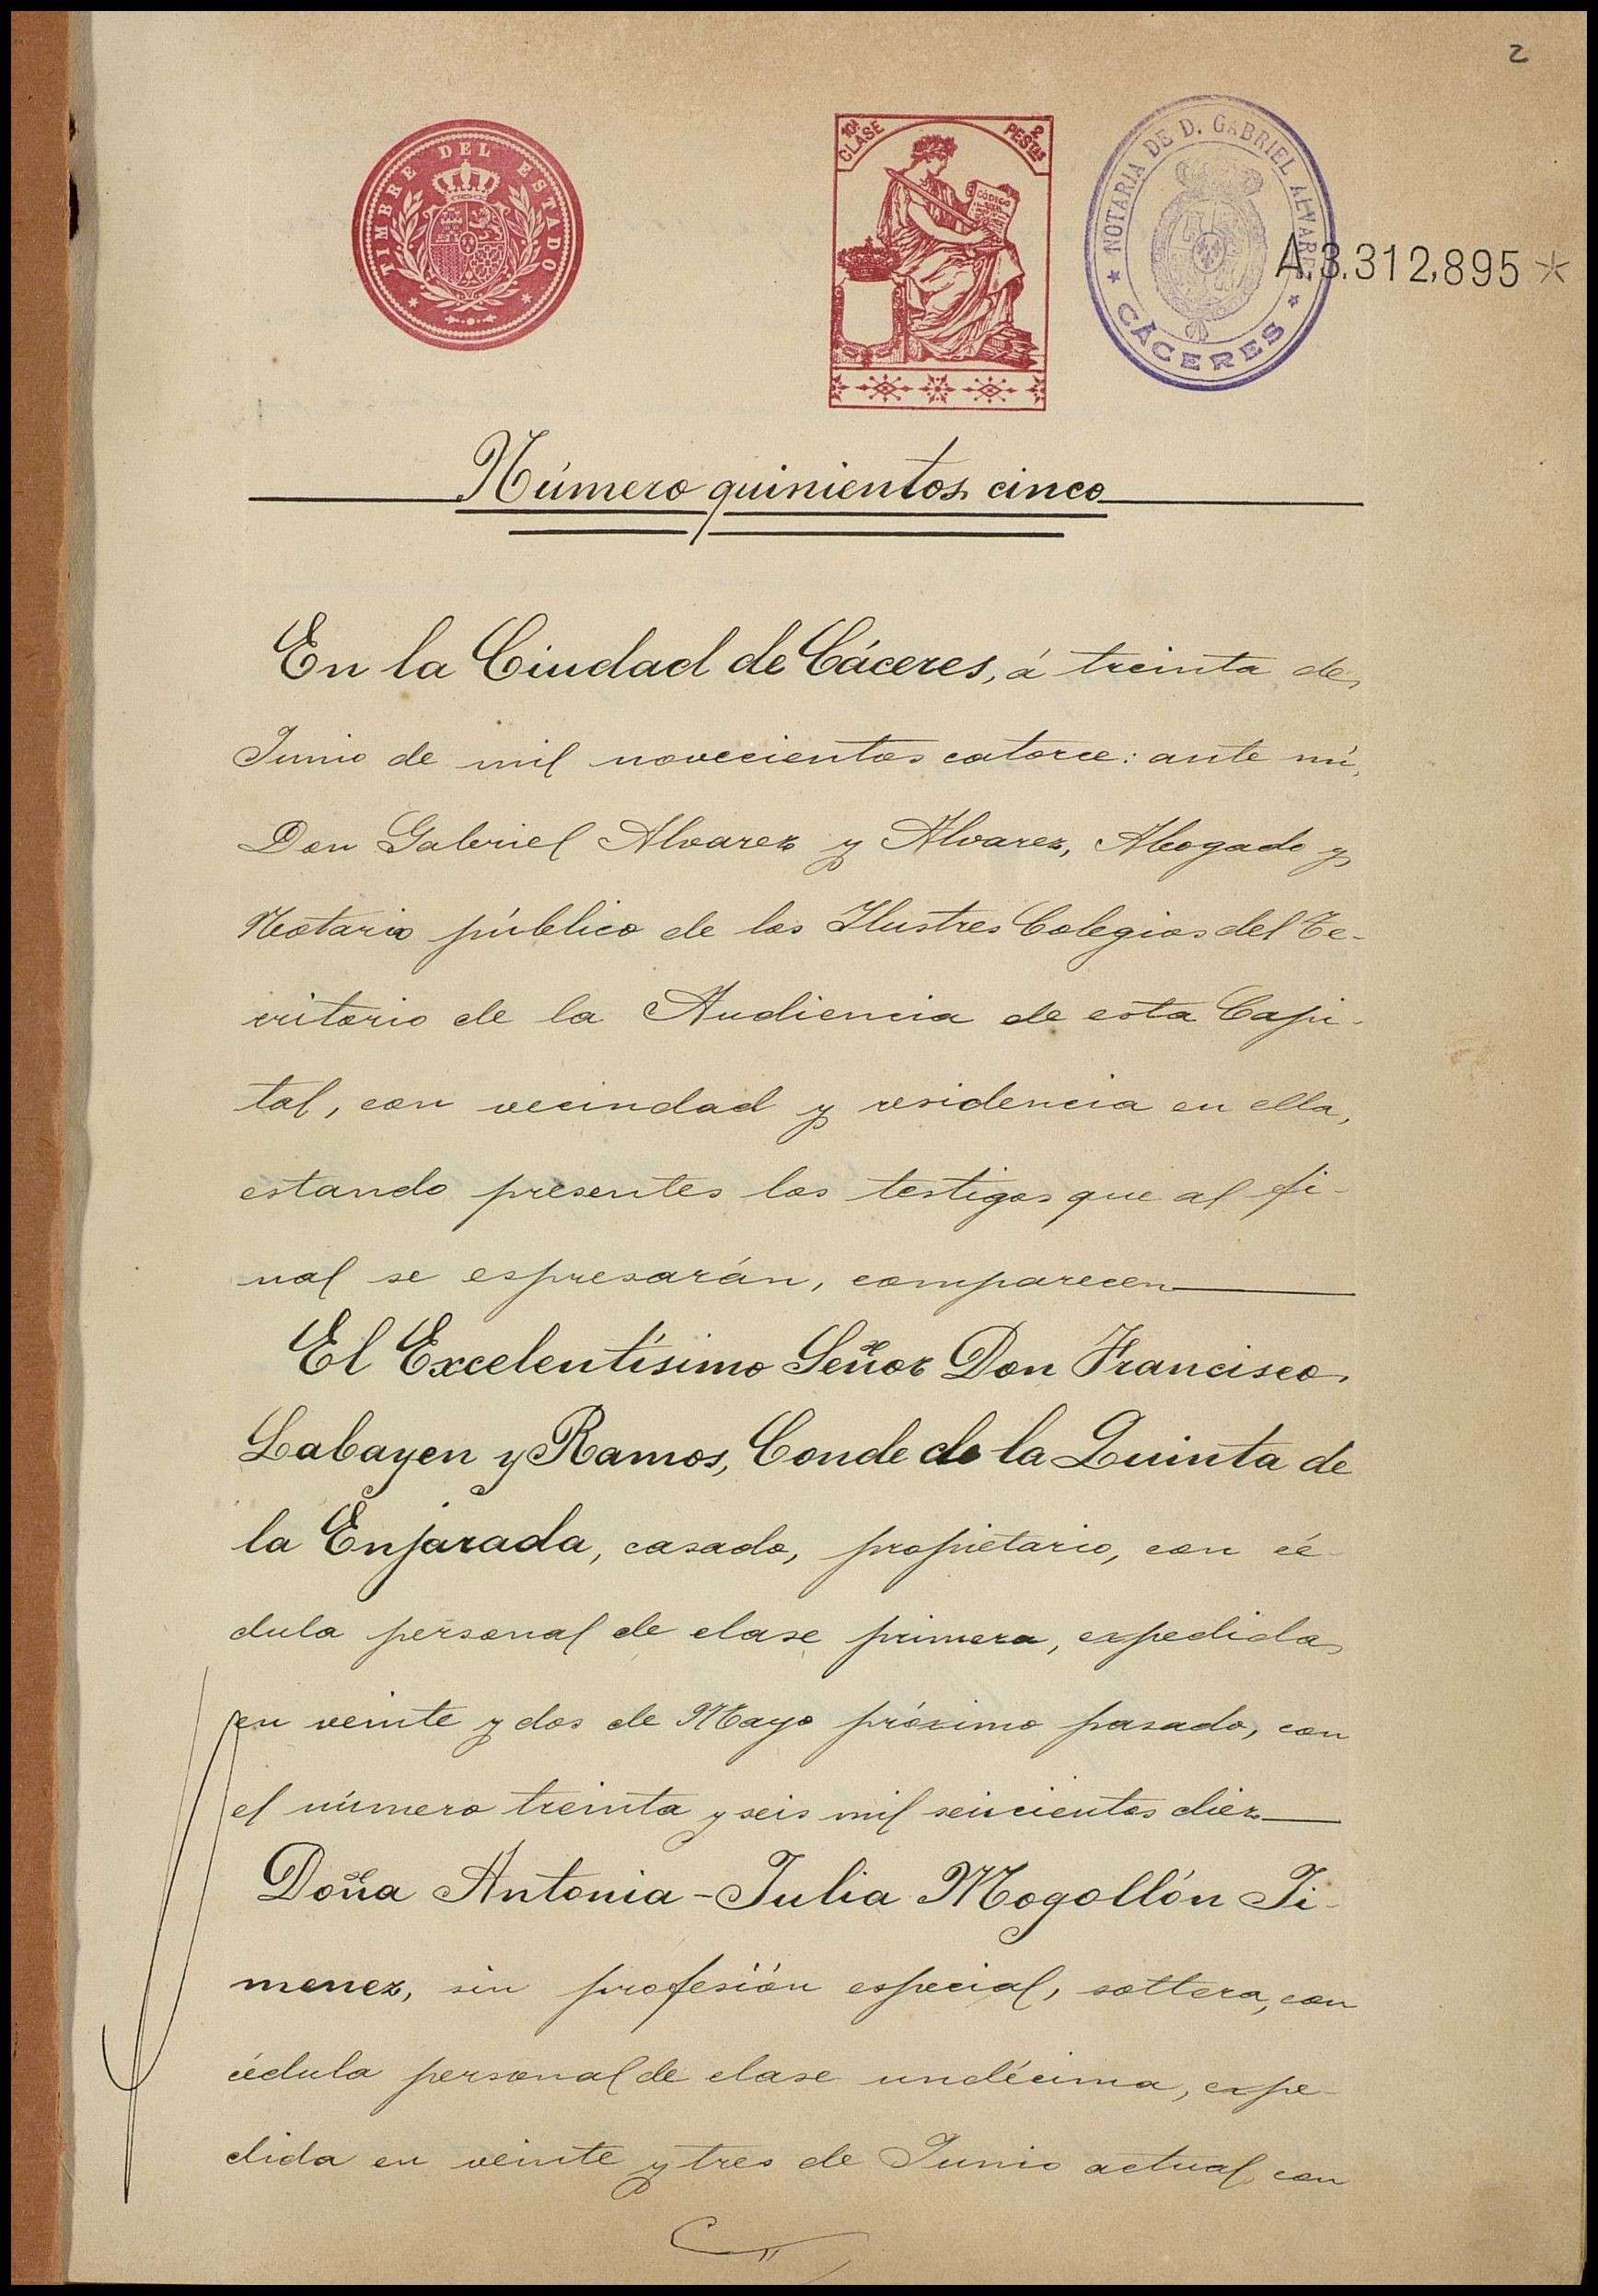 2
TIMBRE DEL ESTADO
10ª CLASE
2 PESTAS
CÓDIGO
NOTARIA DE D. GABRIEL ALVAREZ
CÁCERES
A.3.312,895 *
Número quinientos cinco
En la Ciudad de Cáceres, á treinta de
Junio de mil novecientos catorce: ante mí,
Don Gabriel Alvarez y Alvarez, Abogado y
Notario público de los Ilustres Colegios del Te-
rritorio de la Audiencia de esta Capi-
tal, con vecindad y residencia en ella,
estando presentes los testigos que al fi-
nal se espresarán, comparecen
El Excelentísimo Señor Don Francisco
Labayen y Ramos, Conde de la Quinta de
la Enjarada, casado, propietario, con cé-
dula personal de clase primera, expedida
en veinte y dos de Mayo próximo pasado, con
el número treinta y seis mil seiscientos diez
Doña Antonia-Julia Mogollón Ji-
menez, sin profesión especial, soltera, con
cédula personal de clase undécima, expe-
dida en veinte y tres de Junio actual con